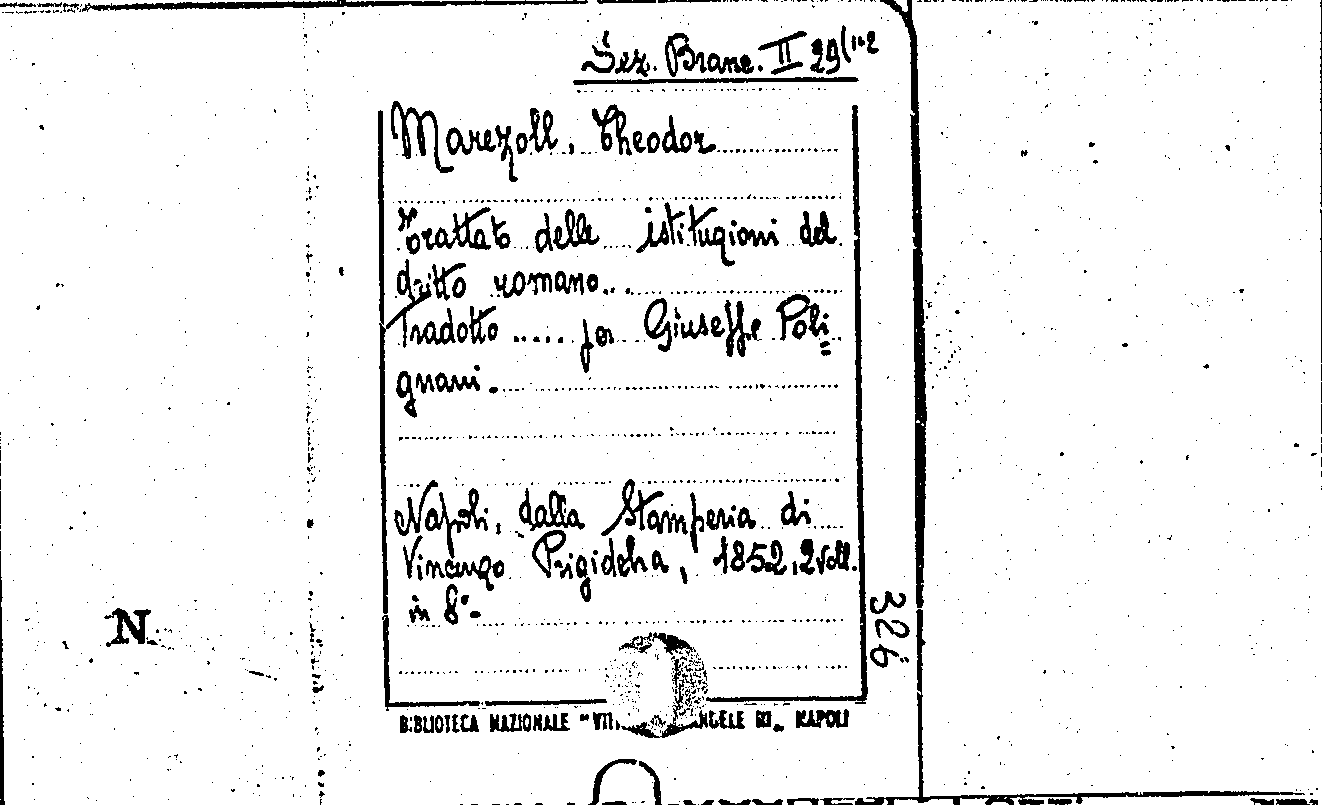 Sez. Branc. II 29(1-2
Marezoll, Theodor
Trattato delle istituzioni del
dritto romano...
Tradotto ..... per Giuseppe Poli=
gnani.
Napoli, dalla Stamperia di
Vincenzo Prigiobba, 1852, 2 voll.
in 8°-
326
N
BIBLIOTECA NAZIONALE "VITT ANUELE III„ NAPOLI